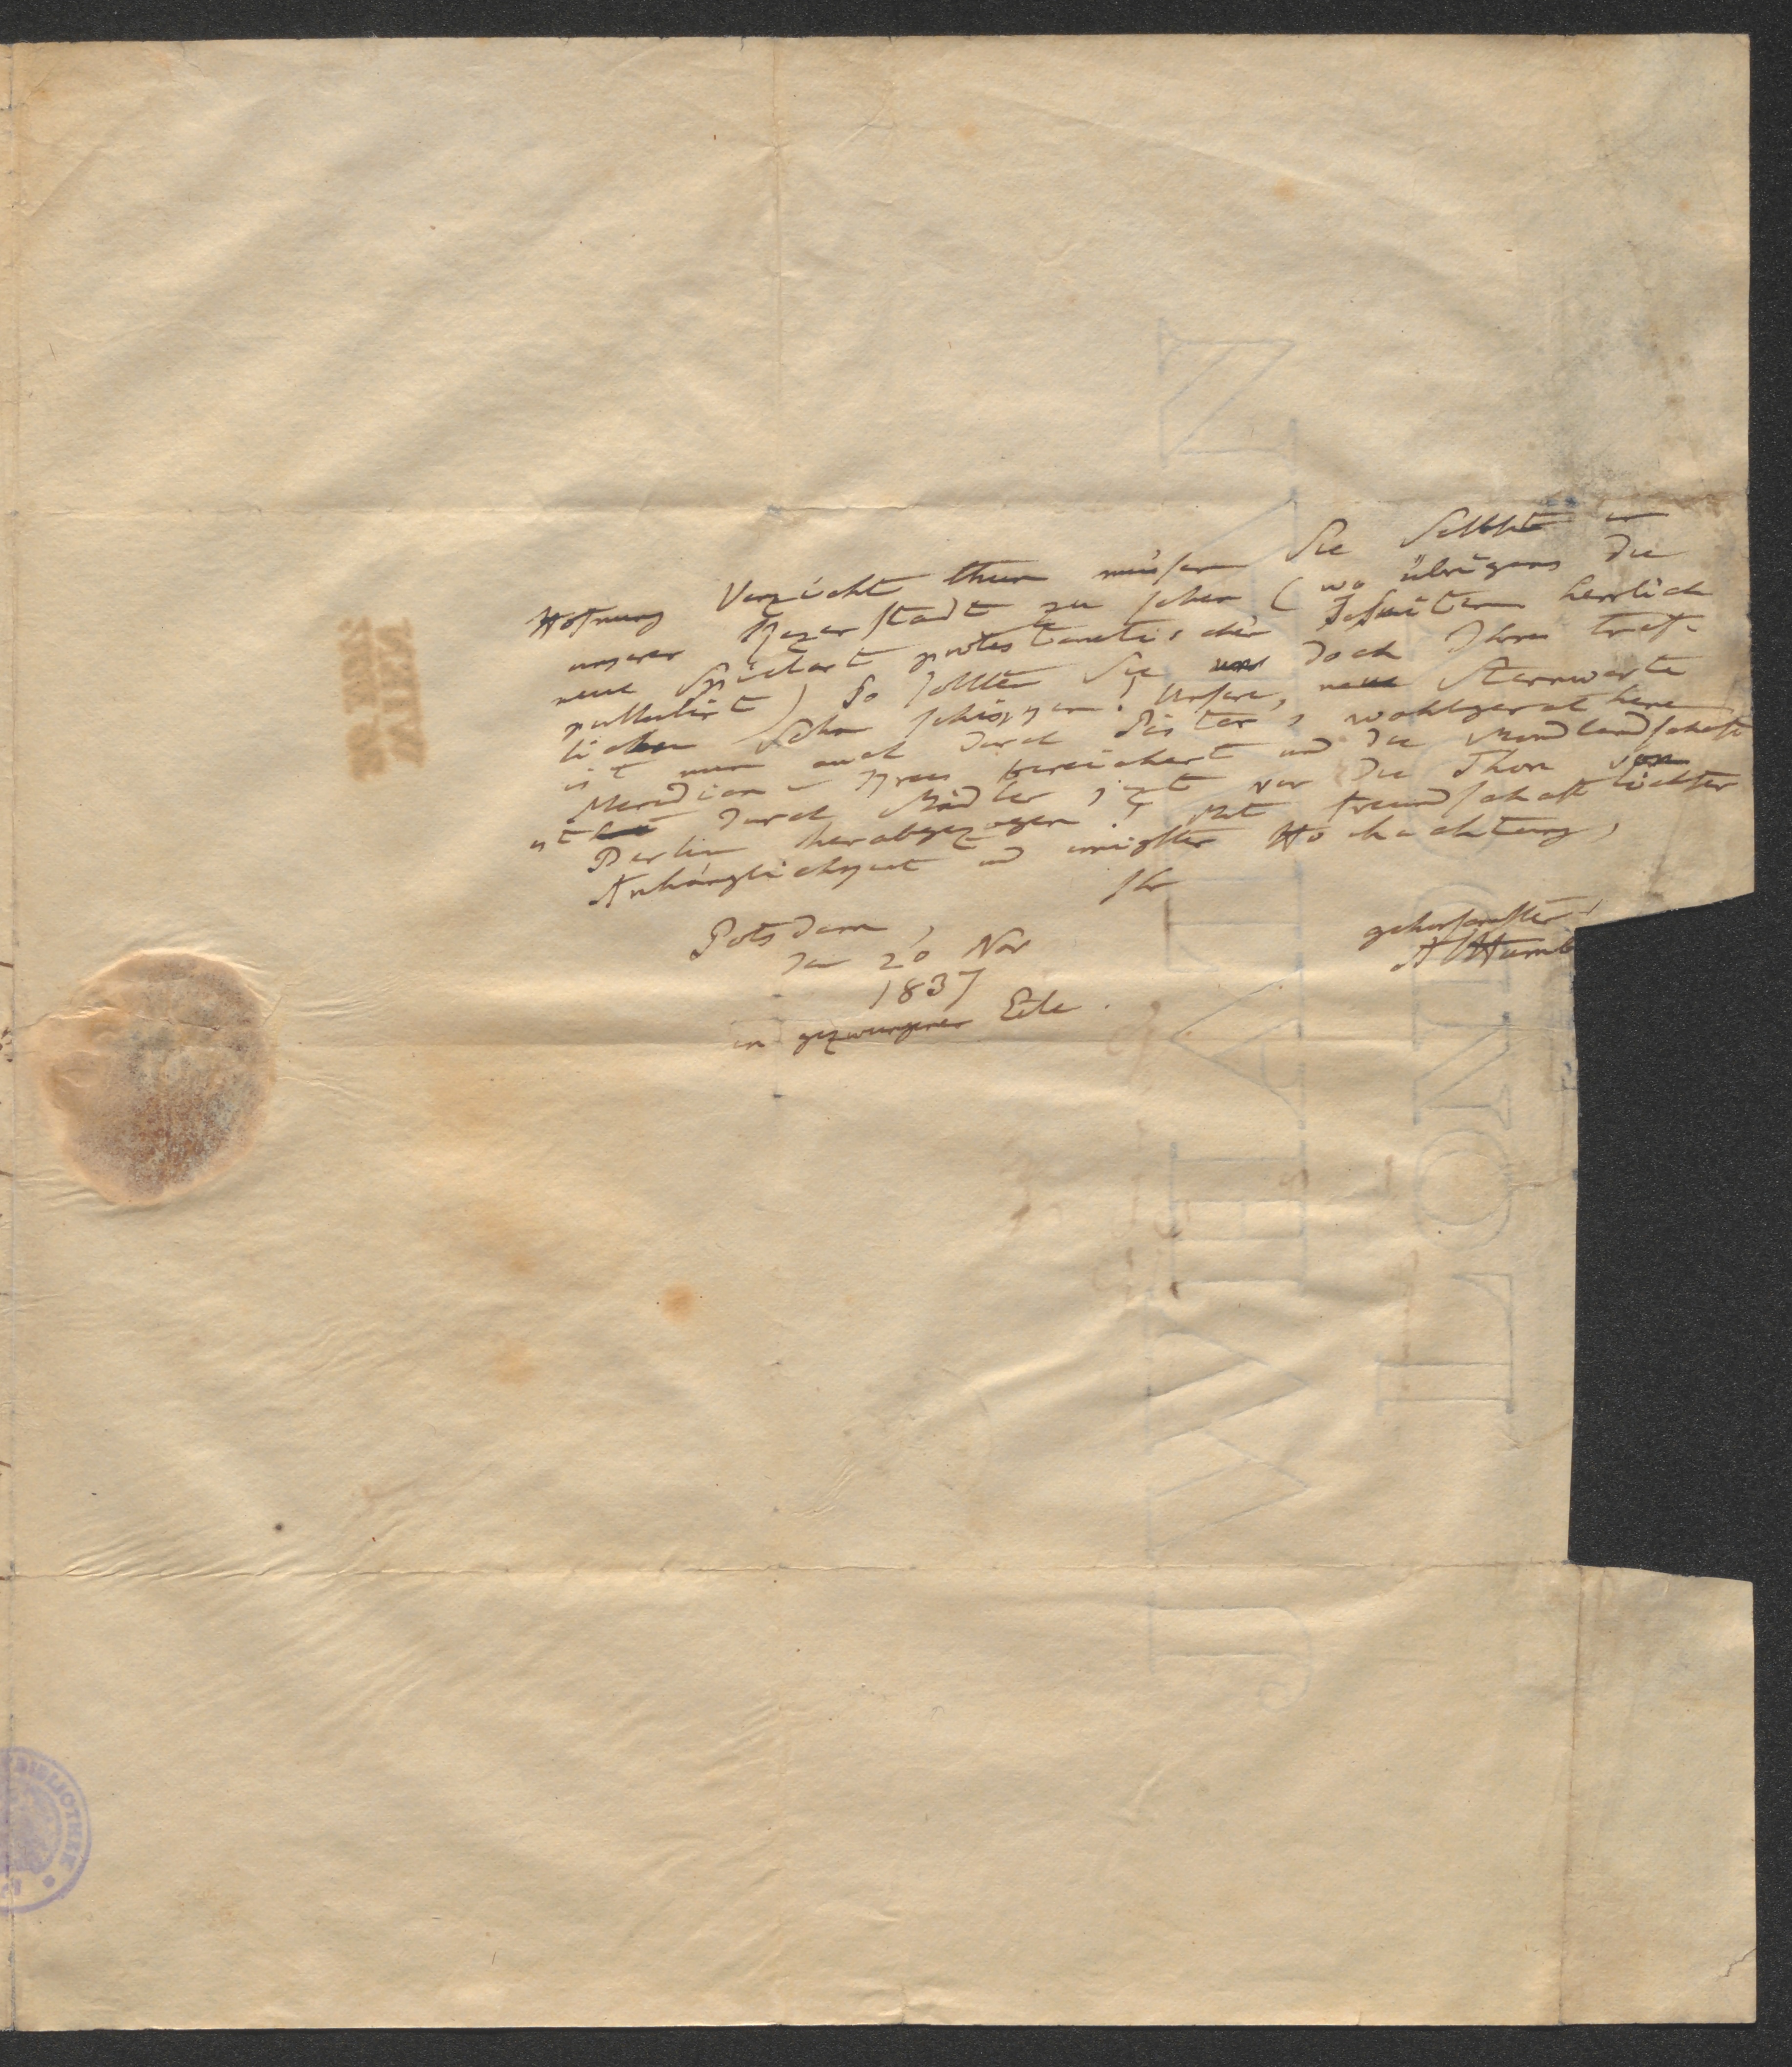 Hofnung Verzicht thun müssen Sie Selbst in
unserer stadt zu sehen (wo übrigens die
neue Spielart protestantischer Jesuiten herrlich
pullulirt) So sollten Sie uns doch Ihren tref-
lichen Sohn schikken! Unsere, neue Sternwarte
ist nun auch durch Pistor's wohlgerathene
Meridian-Kreis bereichert und die Mondlandschaft
ist durch Mädler jezt vor die Thore von
Berlin herabgezogen! Mit freundschaftlichster
Anhänglichkeit und innigster Hochachtung,
Ihr
gehorsamster
A Humb
Potsdam,
den 20 Nov
1837
in gezwungener Eile.
WIEN
BIBLIOTHEK
J WHATMAN